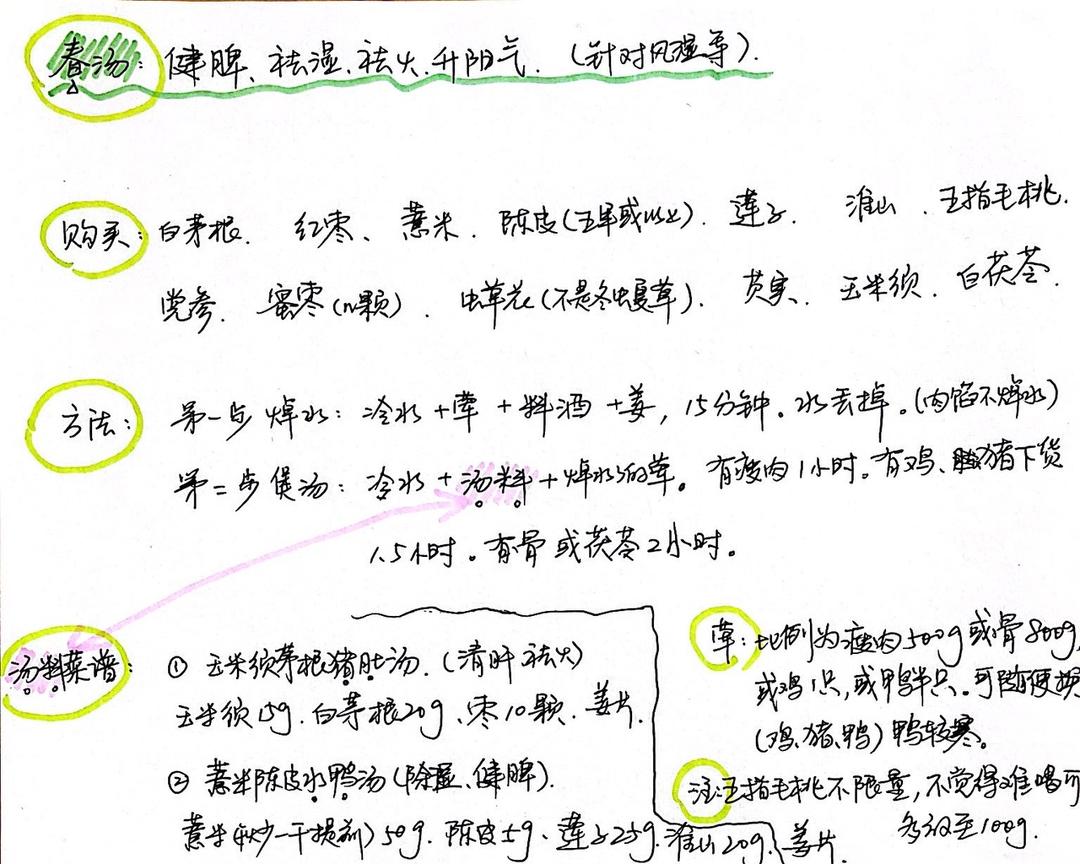 春汤：健脾、祛湿、祛火、升阳气．（针对风湿等）．
购买：白茅根．红枣、薏米．陈皮(五年或以上)．莲子．淮山．五指毛桃．
党参．蜜枣(n颗)．虫草花(不是冬虫夏草)．芡实．玉米须．白茯苓．
方法：第一步 焯水：冷水+荤+料酒+姜，15分钟。水丢掉。(内馅不焯水)
第二步 煲汤：冷水+汤料+焯水的荤。有瘦肉1小时。有鸡、猪下货
1.5小时。有骨或茯苓2小时。
汤料菜谱：① 玉米须茅根猪肚汤．(清肝祛火)
玉米须15g．白茅根20g．枣10颗．姜片．
② 薏米陈皮水鸭汤(除湿、健脾)．
薏米(炒一干损前)50g．陈皮5g．莲子25g．淮山20g．姜片．
荤：比例为瘦肉500g或骨800g，
或鸡1只，或鸭半只．可随便换
(鸡、猪、鸭) 鸭较寒。
注：五指毛桃不限量，不觉得难喝可
多放至100g．